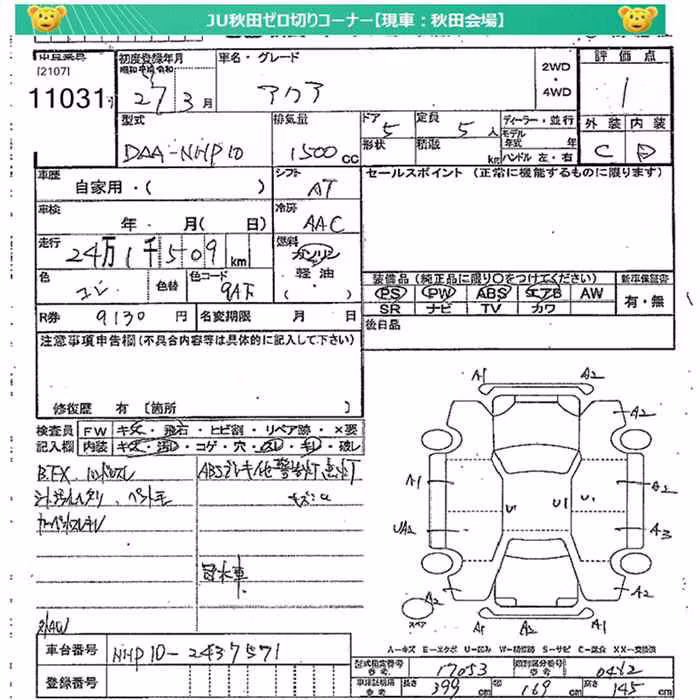 JU秋田ゼロ切りコーナー【現車：秋田会場】
[2107]
11031
初度登録年月
27 3月
車名・グレード
アクア
2WD
・
4WD
評価点
1
外装 内装
C D
型式
DAA-NHP10
排気量
1500cc
ドア
5
形状
定員
5人
積載
km
ディーラー・並行
モデル
年式 年
ハンドル 左・右
車歴
自家用・( )
シフト
AT
セールスポイント (正常に機能するものに限ります)
車検
年 月( 日)
冷房
AAC
走行
24万1千509km
燃料
ガソリン
軽油
・( )
色
コン
色替
色コード
9AF
装備品 (純正品に限り○をつけてください)
PS PW ABS エアB AW
SR ナビ TV カワ
新車保証書
有・無
R券 9130円
名変期限 月 日
後日品
注意事項申告欄(不具合内容等は具体的に記入して下さい)
修復歴 有 [箇所 ]
検査員
記入欄
FW キズ・飛石・ヒビ割・リペア跡・×要
内装 キズ・汚レ・コゲ・穴・スレ・キレ・破レ
ABSブレーキ他警告灯点灯
キズ小
冠水車
A1 A2
A2
A1 U1 U1 A2
UA2 A3
A2 A2
スペア
A1 A2 A1
A-キズ E-エクボ U-凹み W-補修跡 S-サビ C-腐食 XX-交換済
車台番号
NHP10-2437571
登録番号
型式指定番号
参考
17053
類別区分番号
参考
0412
車庫証明用
参考
長さ
399cm
巾
169cm
高さ
145cm